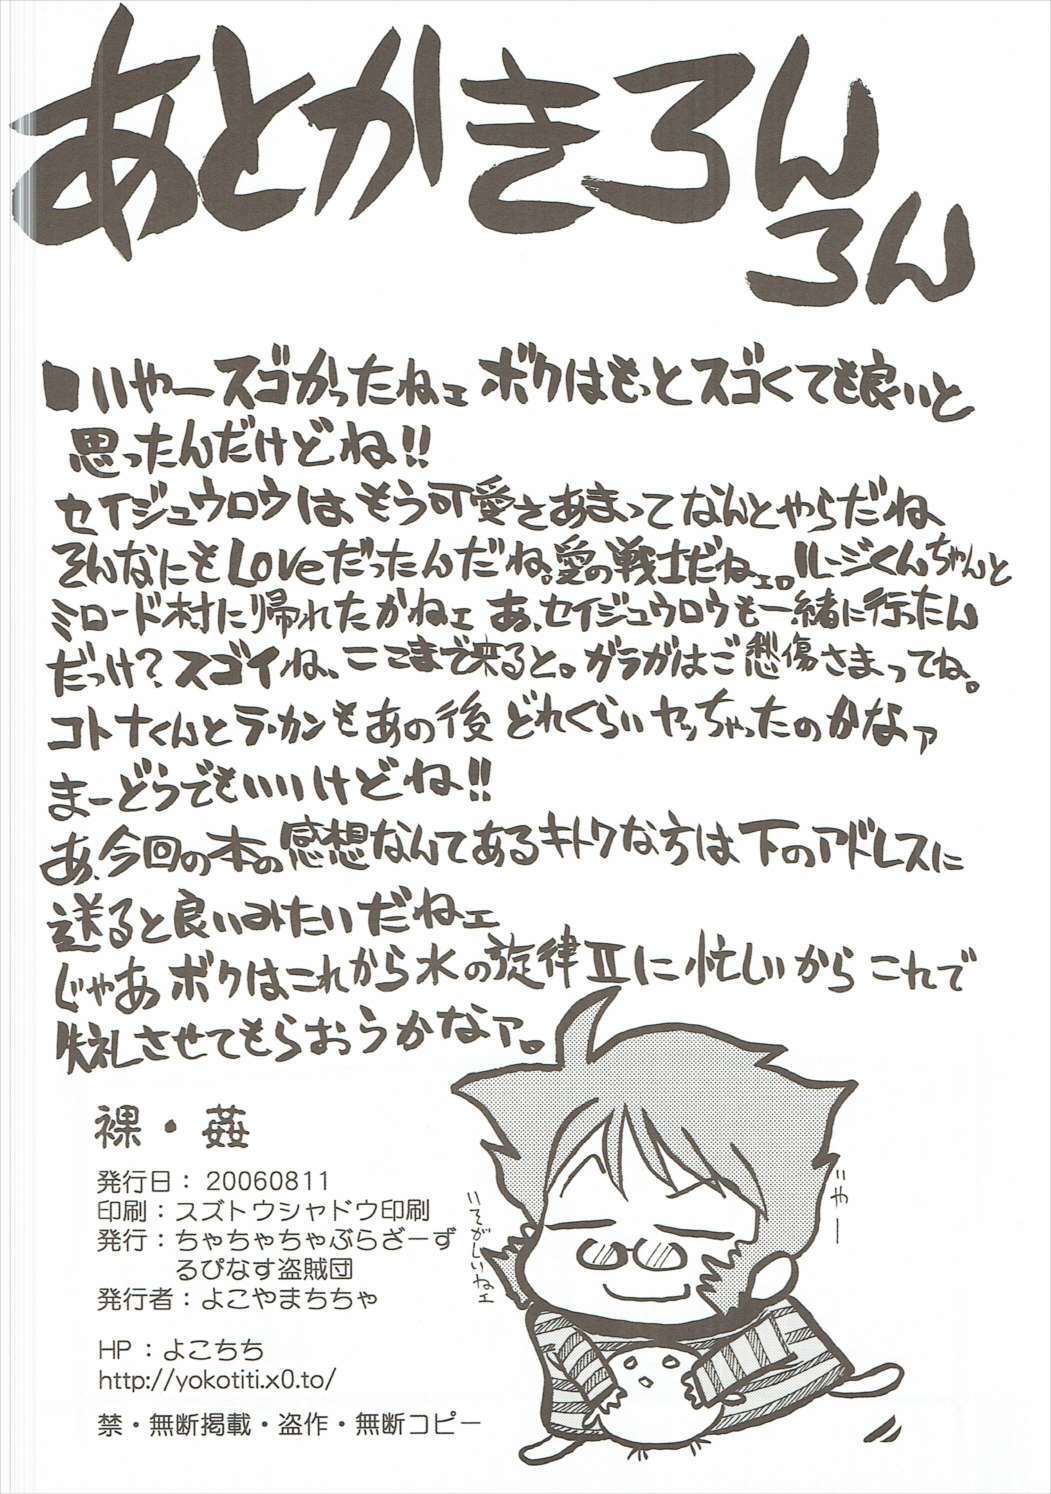 あとかきろん
ろん
■いやースゴかったねェ ボクはもっとスゴくても良いと
思ったんだけどね!!
セイジュウロウは、もう可愛さあまってなんとやらだね、
そんなにもLoveだったんだね。愛の戦士だねェ。ルージくんちゃんと
ミロード村に帰れたかねェ あ、セイジュウロウも一緒に行ったん
だっけ?スゴイね、ここまで来ると。ガラガはご愁傷さまってね。
コトナくんとラ・カンもあの後どれくらいヤッちゃったのかなァ
まーどうでもいいけどね!!
あ、今回の本の感想なんてあるキトクな方は下のアドレスに
送ると良いみたいだねェ
じゃあボクはこれから水の旋律Ⅱに忙しいからこれで
失礼させてもらおうかなァ。
裸・姦
発行日: 20060811
印刷:スズトウシャドウ印刷
発行:ちゃちゃちゃぶらざーず
るぴなす盗賊団
発行者:よこやまちちゃ
HP:よこちち
http://yokotiti.x0.to/
禁・無断掲載・盗作・無断コピー
いそがしいねェ
いやー